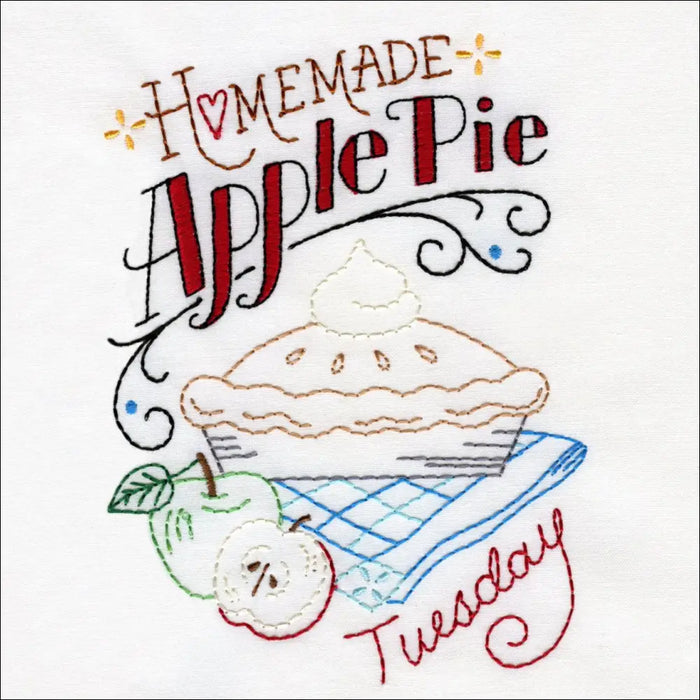 HOMEMADE
Apple Pie
Tuesday